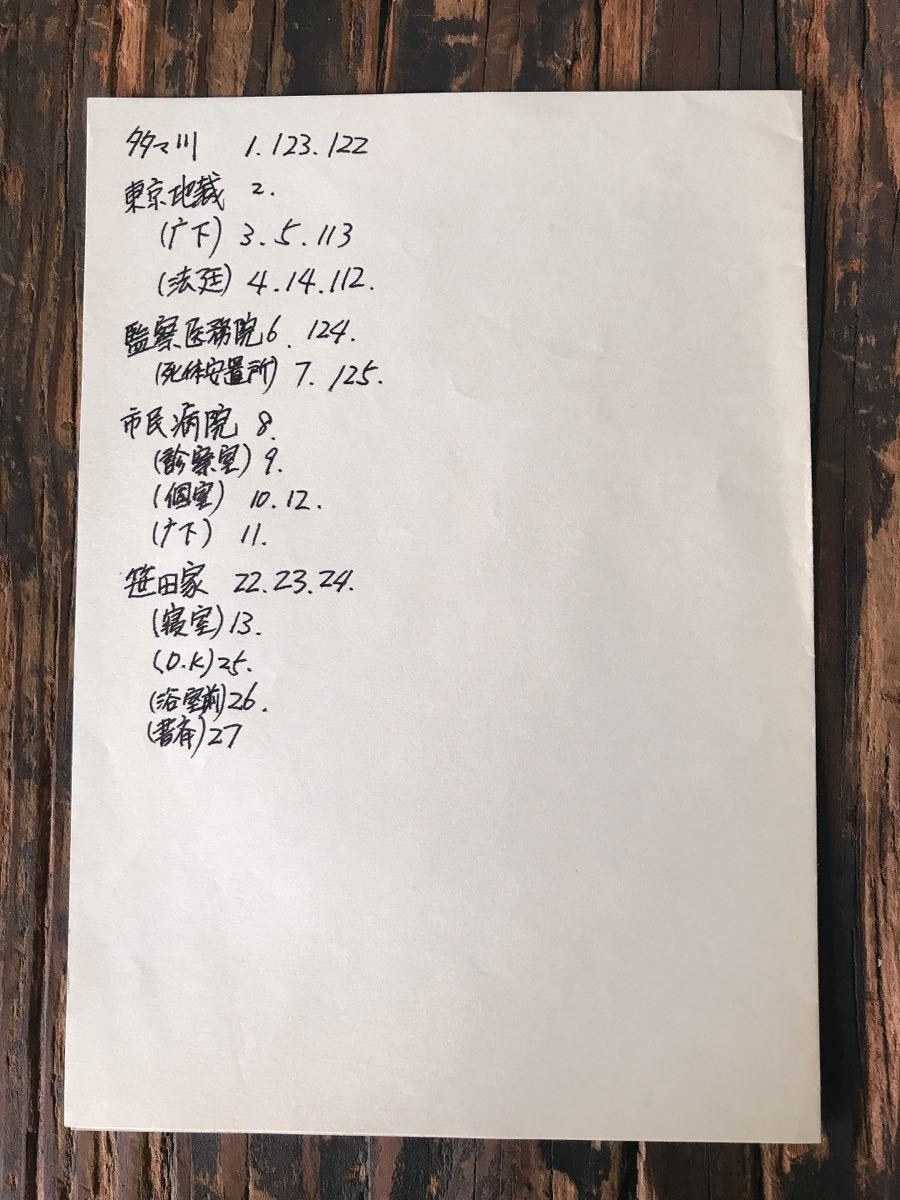 タマ川 1.123.122
東京地裁 2.
(广下) 3.5.113
(法廷) 4.14.112.
監察医務院 6.124.
(死体安置所) 7.125.
市民病院 8.
(診察室) 9.
(個室) 10.12.
(广下) 11.
笹田家 22.23.24.
(寝室) 13.
(D.K) 25.
(浴室前) 26.
(書斉) 27